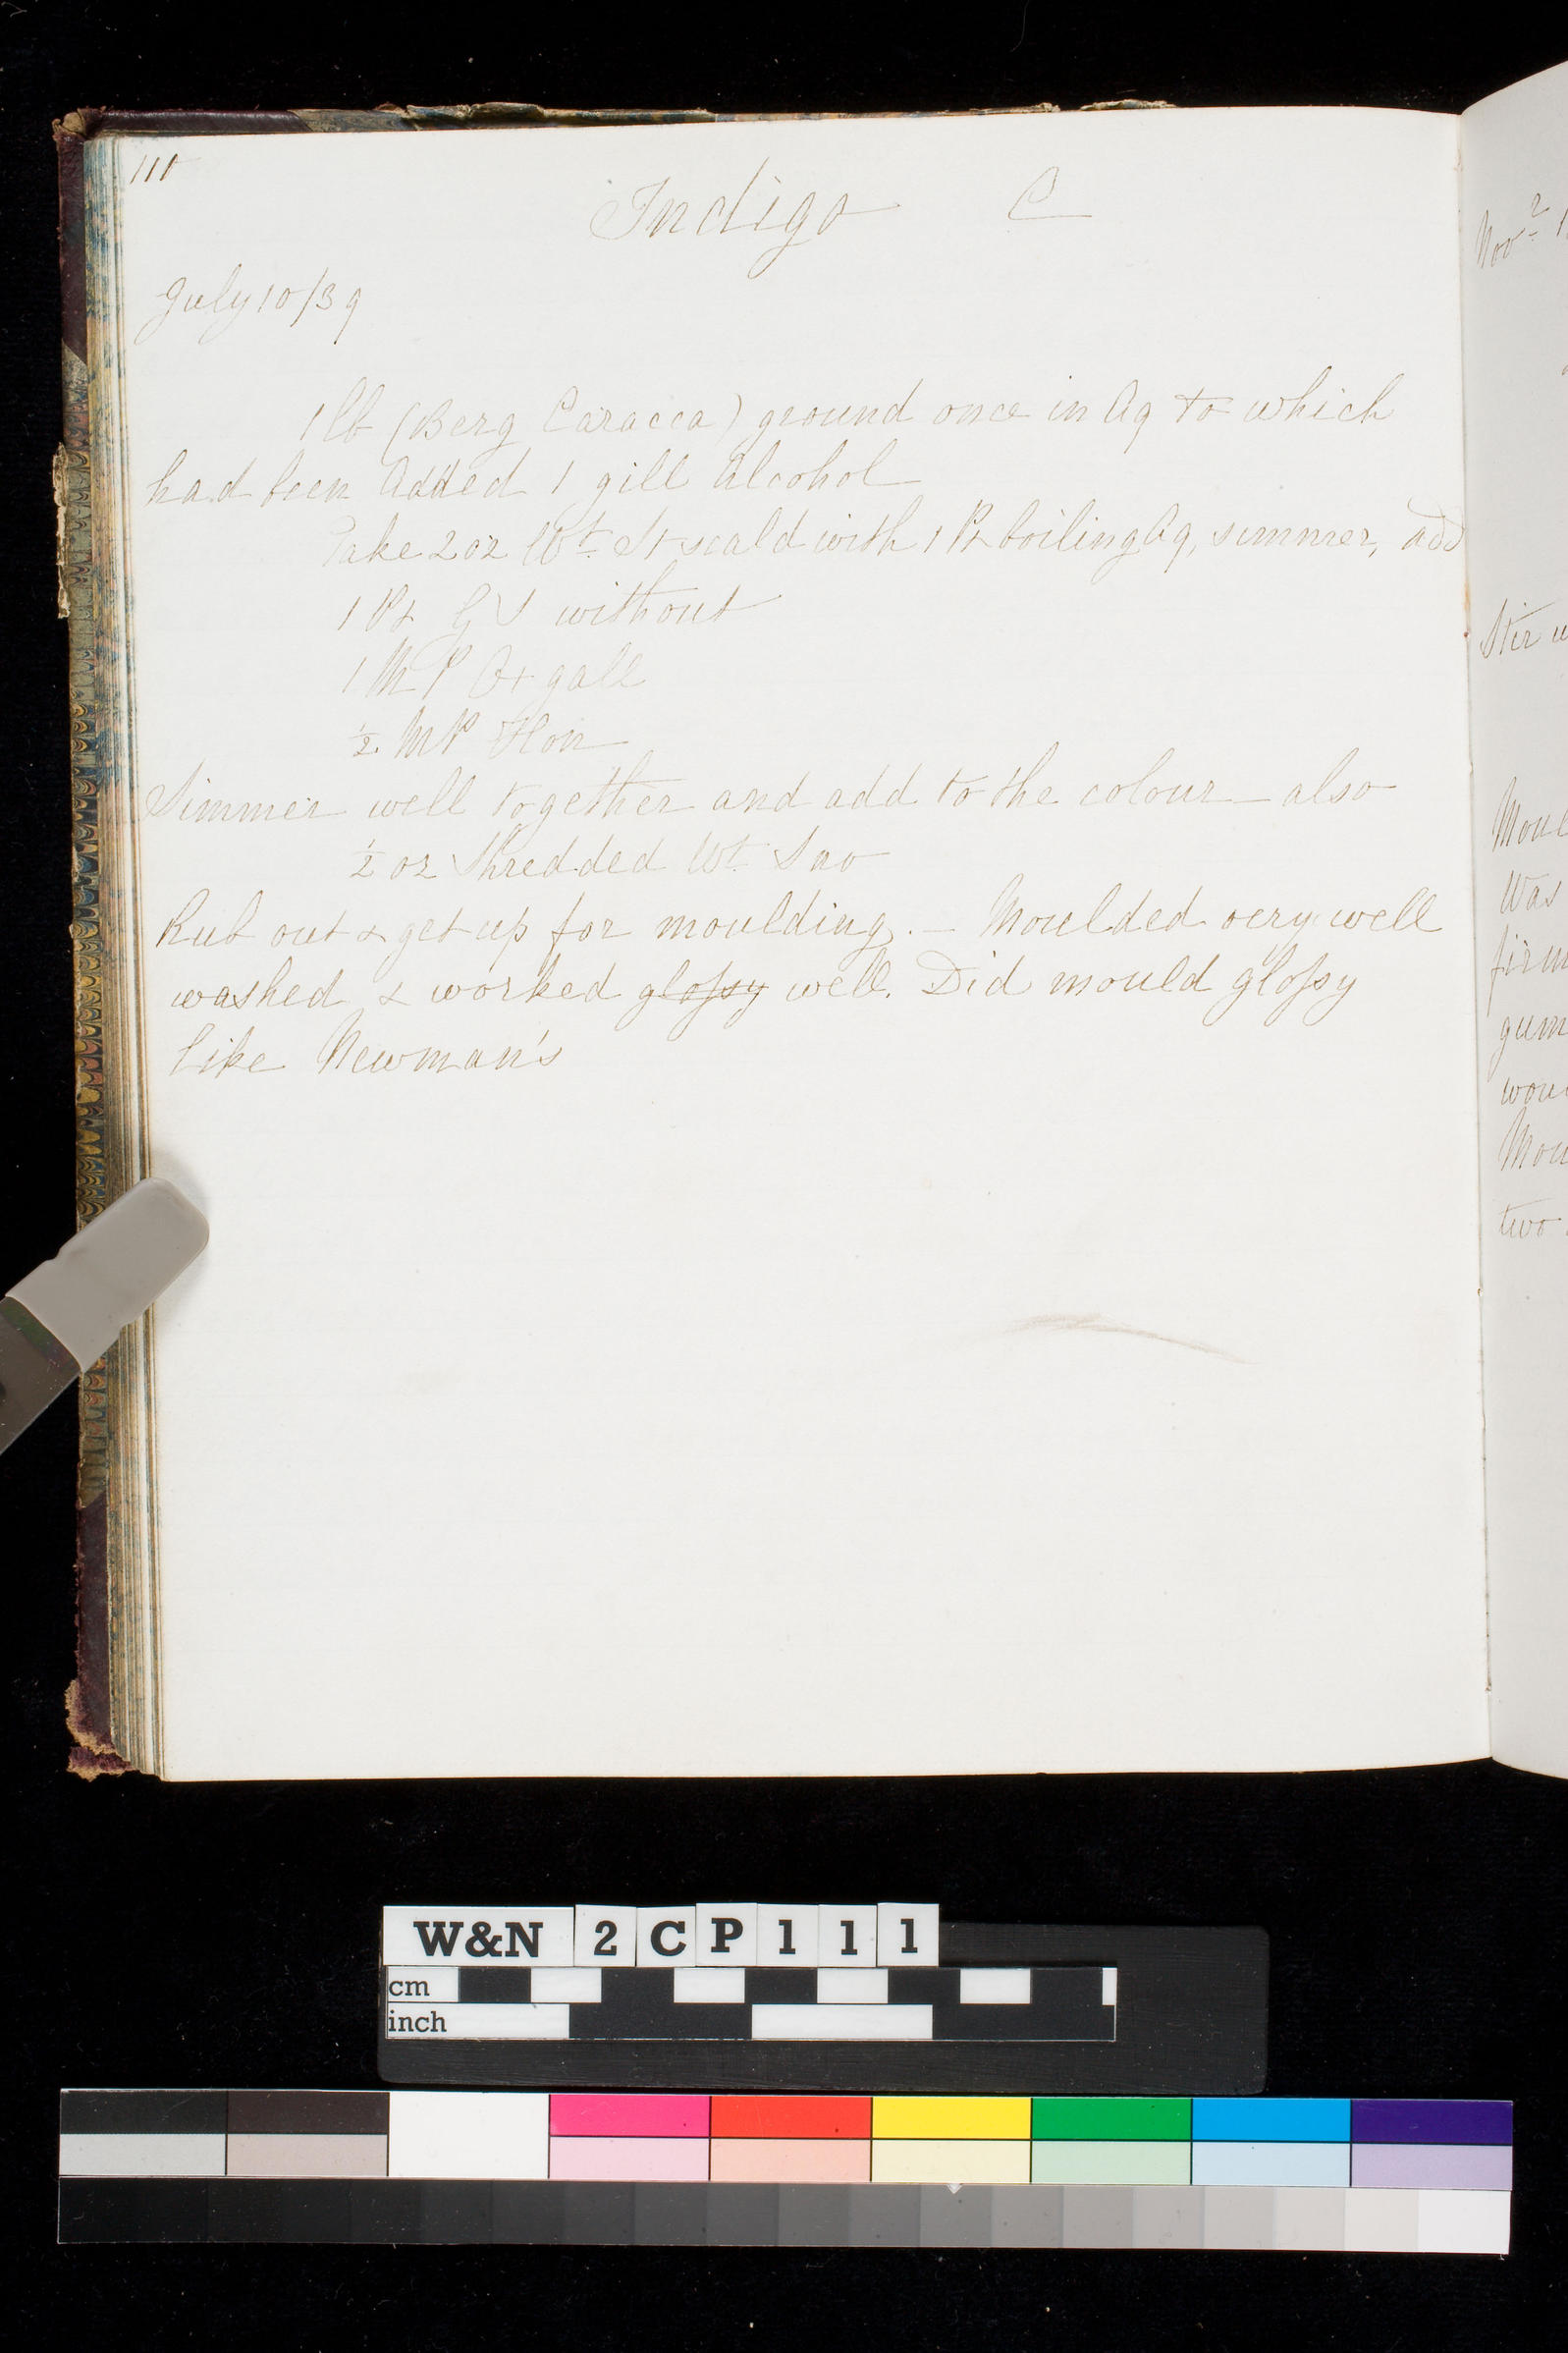 111
Indigo C
July 10/39
1 lb (Berg Caracca) ground once in Aq to which
had been Added 1 gill Alcohol
Take 2 oz Wt. St scald with 1 Pt boiling Aq, simmer, add
1 Pt G S without
1 M P Ox gall
½ M P Hon
Simmer well together and add to the colour – also
½ oz Shredded Wt. Sao
Rub out & get up for moulding. – Moulded very well
washed & worked glossy well. Did mould glossy
like Newman's
Nov 2
Stir
Moul
Was
firm
gum
wou
Mou
two
W&N 2CP111
cm
inch